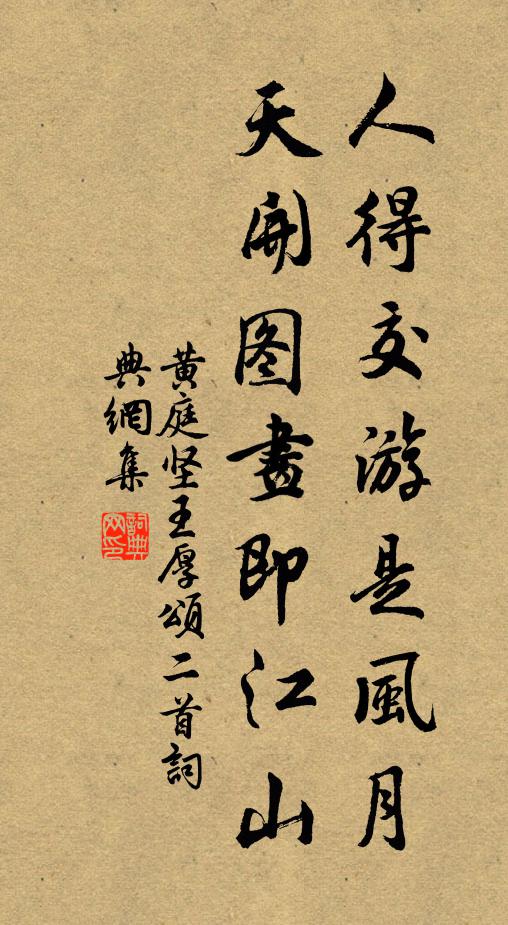 人得交游是風月
天開图畫即江山
黄庭坚王厚頌二首詞
典網集
詞典网印